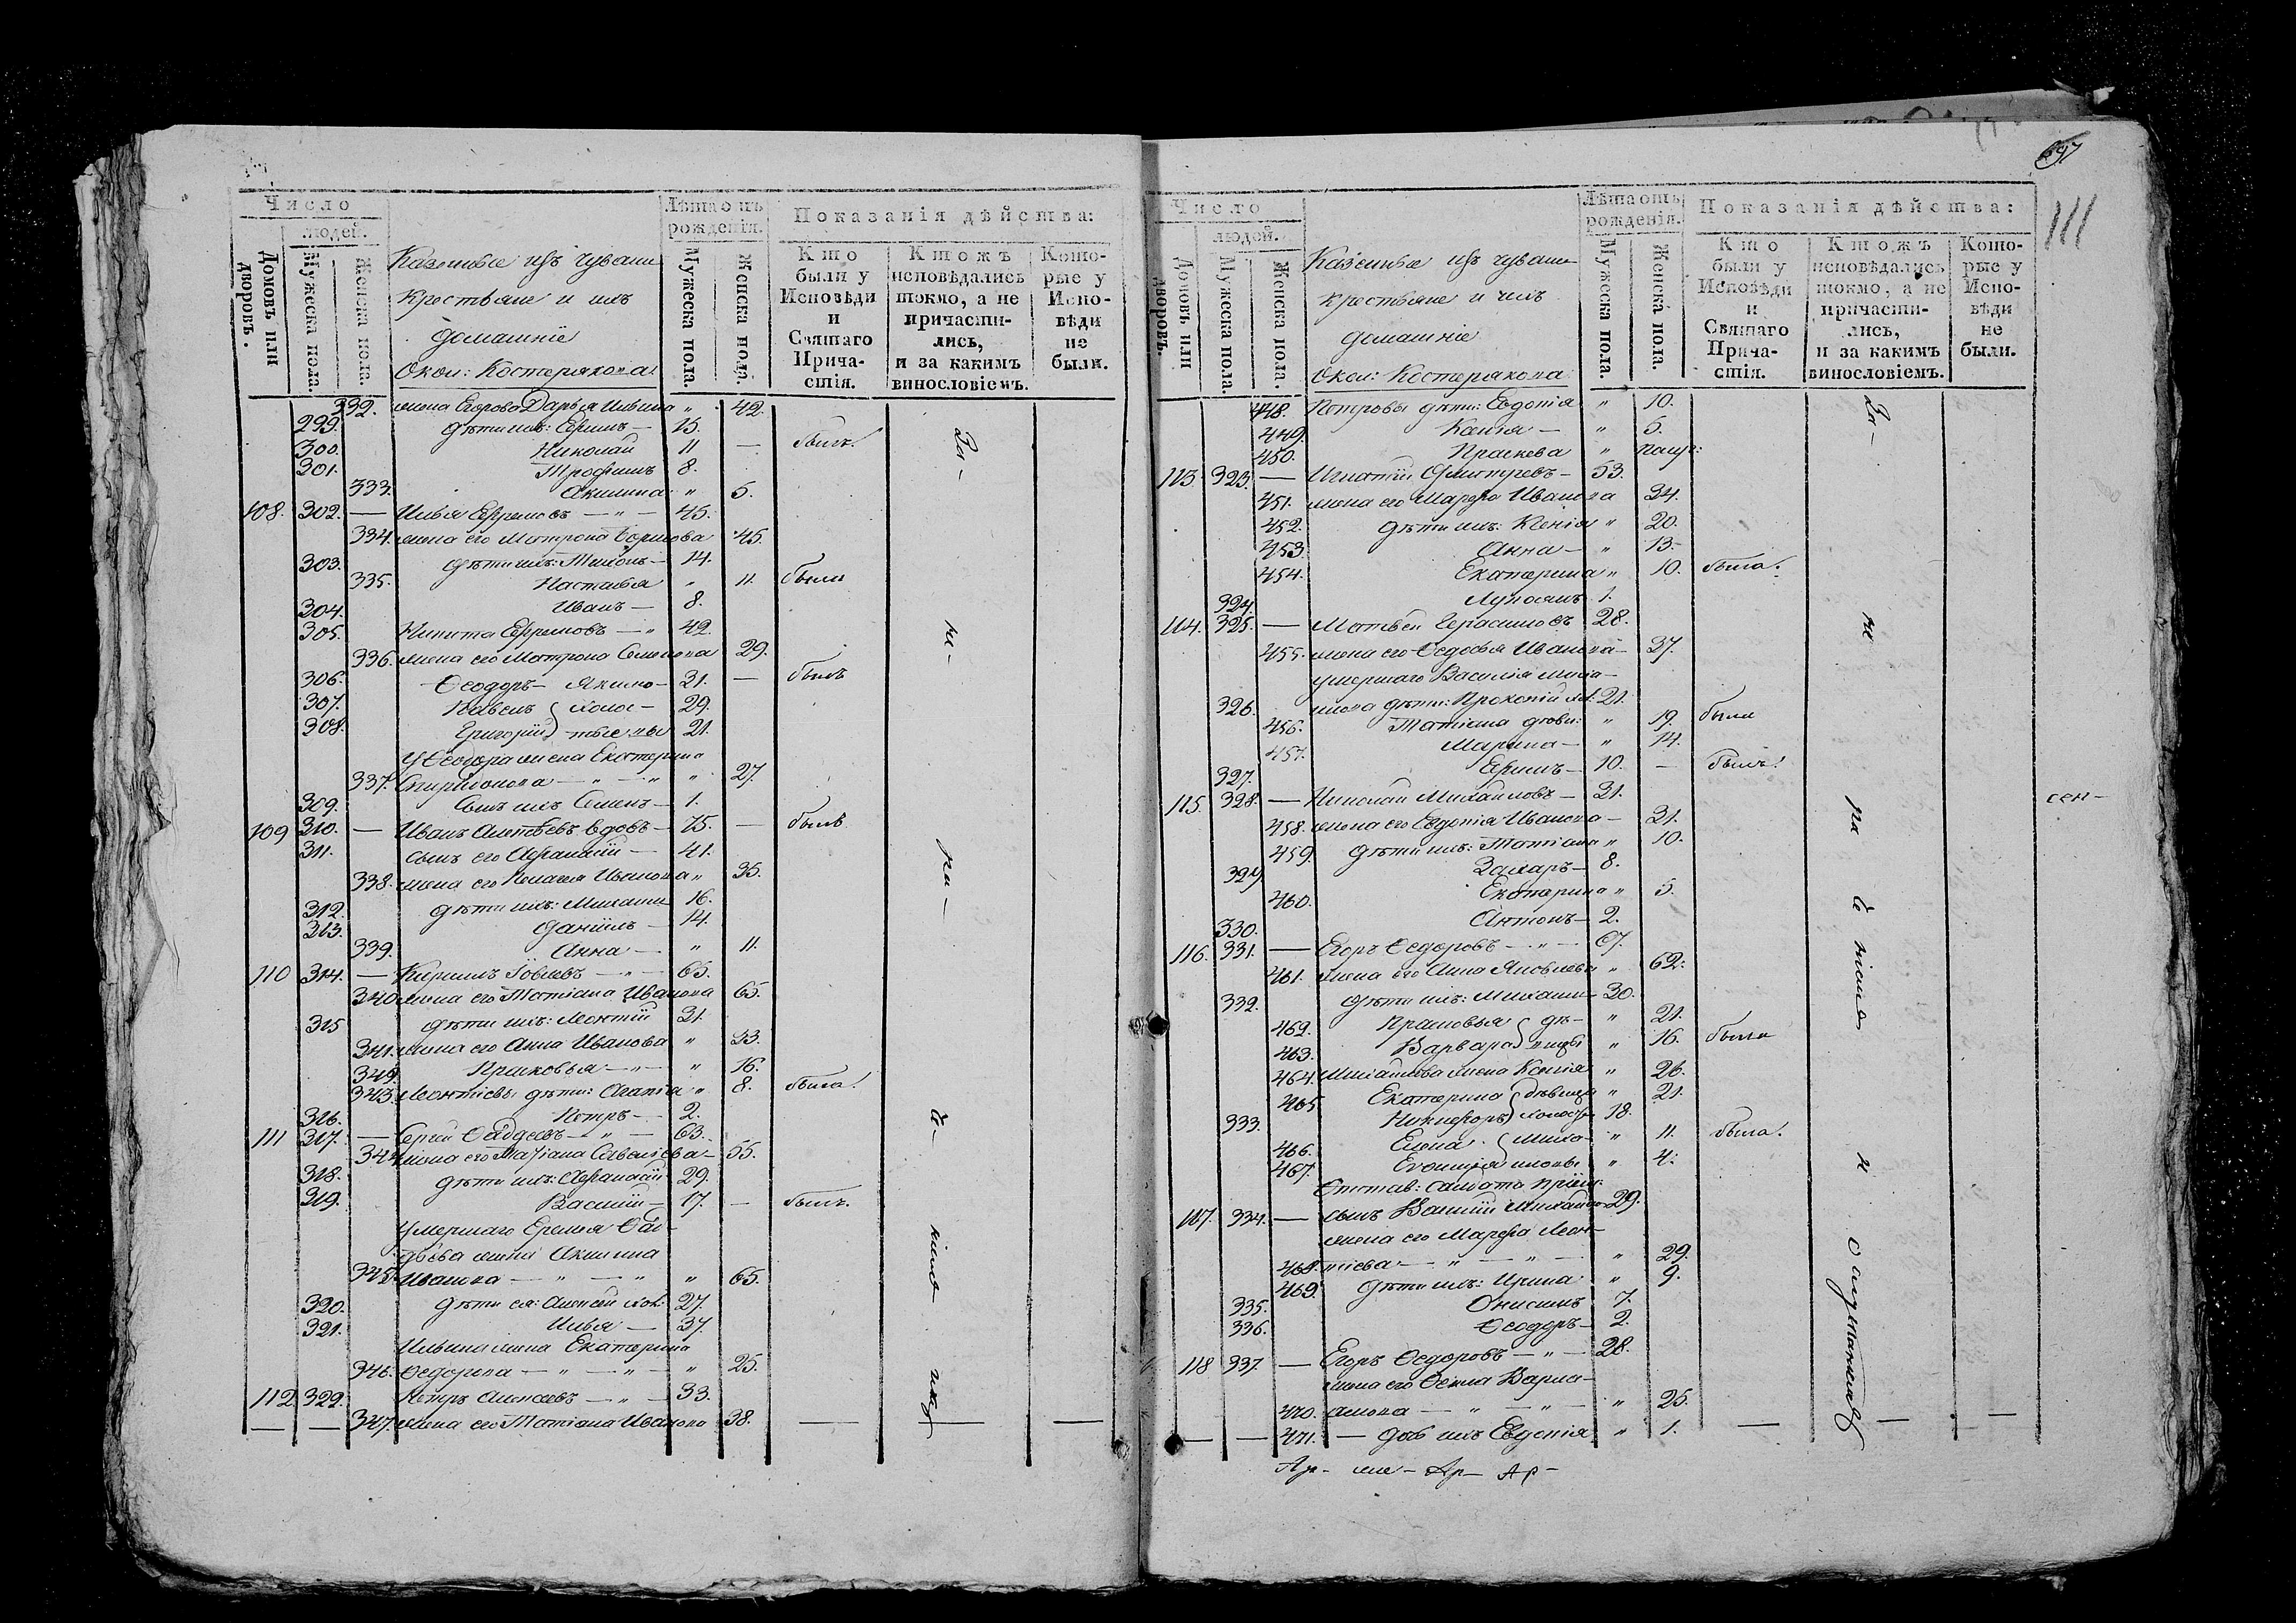 Число
людей.
Домовъ или дворовъ.
Мужеска пола.
Женска пола.
Казенные изъ чуваш
крестьяне и ихъ
домашніе
Окол: Костерякова
Лѣта отъ
рожденія.
Мужеска пола.
Женска пола.
Показанія дѣйства:
Кто
были у
Исповѣди
и
Святаго
Прича-
стія.
Ктожъ
исповѣдались
токмо, а не
причасти-
лись,
и за какимъ
винословіемъ.
Кото-
рые у
Испо-
вѣди
не
были.
332. жена Егорова Дарья Ильина " 42.
299. дѣти ихъ: Ефимъ — 15.
300. Николай 11 — былъ.
301. Трофимъ 8.
333. Акилина " 5.
108. 302. — Илья Ефремовъ — " — 45.
334. жена его Матрона 45.
303. дѣти ихъ: Тихонъ — 14.
335. Настасья " 11. были
304. Иванъ — 8.
305. Никита Ефремовъ — " 42.
336. жена его Матрона Семенова 29.
306. Ѳеодоръ — 31. — былъ
307. Павелъ холос — 29.
308. Григорій тые 21.
У Ѳеодора жена Екатерина
337. Спиридонова — " — " " 27.
309. сынъ ихъ Семенъ — 1.
109 310. — Иванъ вдовъ — 75. — былъ
311. сынъ его Афанасій — 41.
338. жена его Пелагея Иванова " 35.
312. дѣти ихъ: Михаилъ 16.
313. Даніилъ — 14.
339. Анна — " 11.
110 314. — Кирилъ — " — 65.
340. жена его Татіана Иванова 65.
315 дѣти ихъ: Леонтій 31.
341. жена его Анна Иванова " 33.
342. Прасковья — " — " 16.
343. Леонтіевы дѣти: Агапія " 8. была.
316. Петръ — 2.
111 317. — Сергей Ѳаддеевъ — " — 63.
344. жена его Татіана Савельева — 55.
318. дѣти ихъ: Афанасій 29.
319. Василій — 17. — былъ.
Умершаго Еремѣя Ѳад-
дѣева жена Акилина
345. Иванова — " — " " 65.
320. дѣти ея: Алексѣй хол: 27.
321. Илья — 37.
Ильина жена Екатерина
346. Ѳедорова — " — " — " 25.
112 322. Петръ Алексѣевъ — " — 33.
347. жена его Татіана Иванова 38.
За-
не-
ра-
697
111
Число
людей.
Домовъ или дворовъ.
Мужеска пола.
Женска пола.
Казенные изъ чуваш
крестьяне и ихъ
домашніе
Окол: Костерякова
Лѣта отъ
рожденія.
Мужеска пола.
Женска пола.
Показанія дѣйства:
Кто
были у
Исповѣди
и
Святаго
Прича-
стія.
Ктожъ
исповѣдались
токмо, а не
причасти-
лись,
и за какимъ
винословіемъ.
Кото-
рые у
Испо-
вѣди
не
были.
448. Петровы дѣти: Евдокія " 10.
449. Ксенія — " 5.
450. Праскева " полуг:
113. 323. — Игнатій Дмитріевъ — 53.
451. жена его Марфа Иванова 34.
452. дѣти ихъ: Ксенія " 20.
453. Анна — " 13.
454. Екатерина " 10. была.
324. 1.
114. 325. — Матвей Герасимовъ 28.
455. жена его Ѳедосья Иванова — 37.
умершаго Василія
326. дѣти: Прокопій хол: 21.
456. Татіана дѣви: " 19. были
457. Марина — " 14.
327. Ефимъ — 10. — былъ.
115. 328. — Николай Михайловъ — 31.
458. жена его Евдокія Иванова — 31.
459. дѣти ихъ: Татіана " 10.
329. Захаръ — 8.
460. Екатерина " 5.
330. Антонъ — 2.
116. 331. — Егоръ Ѳедоровъ — " — 67.
461. жена его Анна Яковлева " 62.
332. дѣти ихъ: Михаилъ 30.
462. Прасковья дѣ — " 21.
463. Варвара вицы " 16. были
464. Михайлова жена Ксенія " 26.
465. Екатерина дѣвица " 21.
333. Никифоръ холост 18.
466. Елена Миха- " 11. была.
467. Евгенія иловы " 4.
Отстав: солдата пріем:
117. 334. — сынъ Василій Михайлов 29.
жена его Марфа Леон-
468. тіева — " — " — " — " 29.
469. дѣти ихъ: Ирина " 9.
335. Онисимъ 7.
336. Ѳеодоръ — 2.
118 337. — Егоръ Ѳедоровъ — " — 28.
жена его Ѳекла Варла-
470. амова — " — " — " 25.
471. — дочь ихъ Евдокія " 1.
За-
не
ра
и
сен-